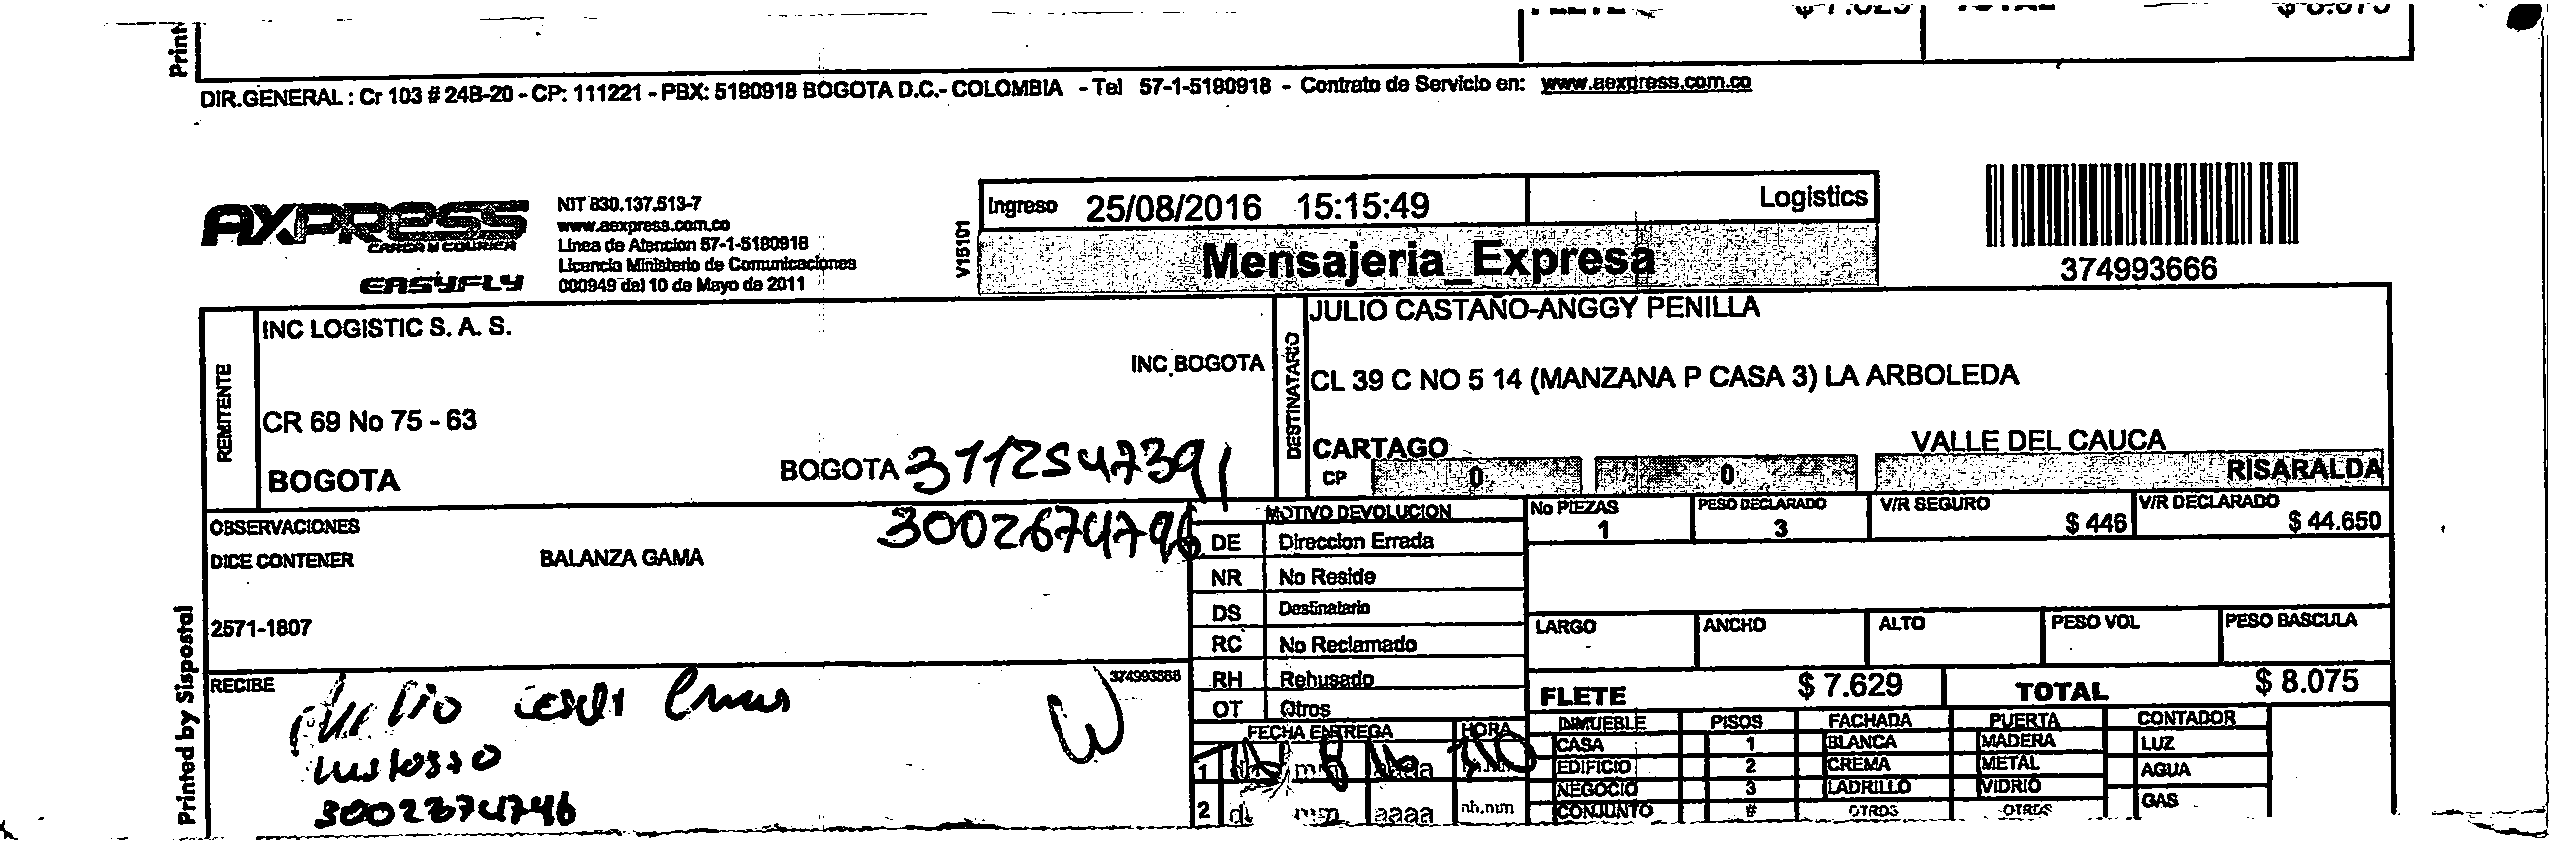 Print
FLETE $ 7.629 TOTAL $ 8.075
DIR.GENERAL : Cr 103 # 24B-20 - CP: 111221 - PBX: 5180918 BOGOTA D.C.- COLOMBIA - Tel 57-1-5180918 - Contrato de Servicio en: www.aexpress.com.co
AXPRESS
CARGA Y COURIER
EASYFLY
NIT 830.137.513-7
www.aexpress.com.co
Linea de Atencion 57-1-5180918
Licencia Ministerio de Comunicaciones
000949 del 10 de Mayo de 2011
V15101
Ingreso 25/08/2016 15:15:49 Logistics
Mensajeria_Expresa
374993666
REMITENTE
INC LOGISTIC S. A. S.
INC BOGOTA
CR 69 No 75 - 63
BOGOTA BOGOTA 3112547391
DESTINATARIO
JULIO CASTAÑO-ANGGY PENILLA
CL 39 C NO 5 14 (MANZANA P CASA 3) LA ARBOLEDA
CARTAGO VALLE DEL CAUCA
CP 0 0 RISARALDA
OBSERVACIONES 3002674796
DICE CONTENER BALANZA GAMA
2571-1807
Printed by Sispostal
RECIBE 374993666
MOTIVO DEVOLUCION
DE Direccion Errada
NR No Reside
DS Destinatario
RC No Reclamado
RH Rehusado
OT Otros
FECHA ENTREGA HORA
1 mm aaaa
2 mm aaaa hh.mm
No PIEZAS 1
PESO DECLARADO 3
V/R SEGURO $ 446
V/R DECLARADO $ 44.650
LARGO ANCHO ALTO PESO VOL PESO BASCULA
FLETE $ 7.629 TOTAL $ 8.075
INMUEBLE PISOS FACHADA PUERTA CONTADOR
CASA 1 BLANCA MADERA LUZ
EDIFICIO 2 CREMA METAL AGUA
NEGOCIO 3 LADRILLO VIDRIO GAS
CONJUNTO # OTROS OTROS